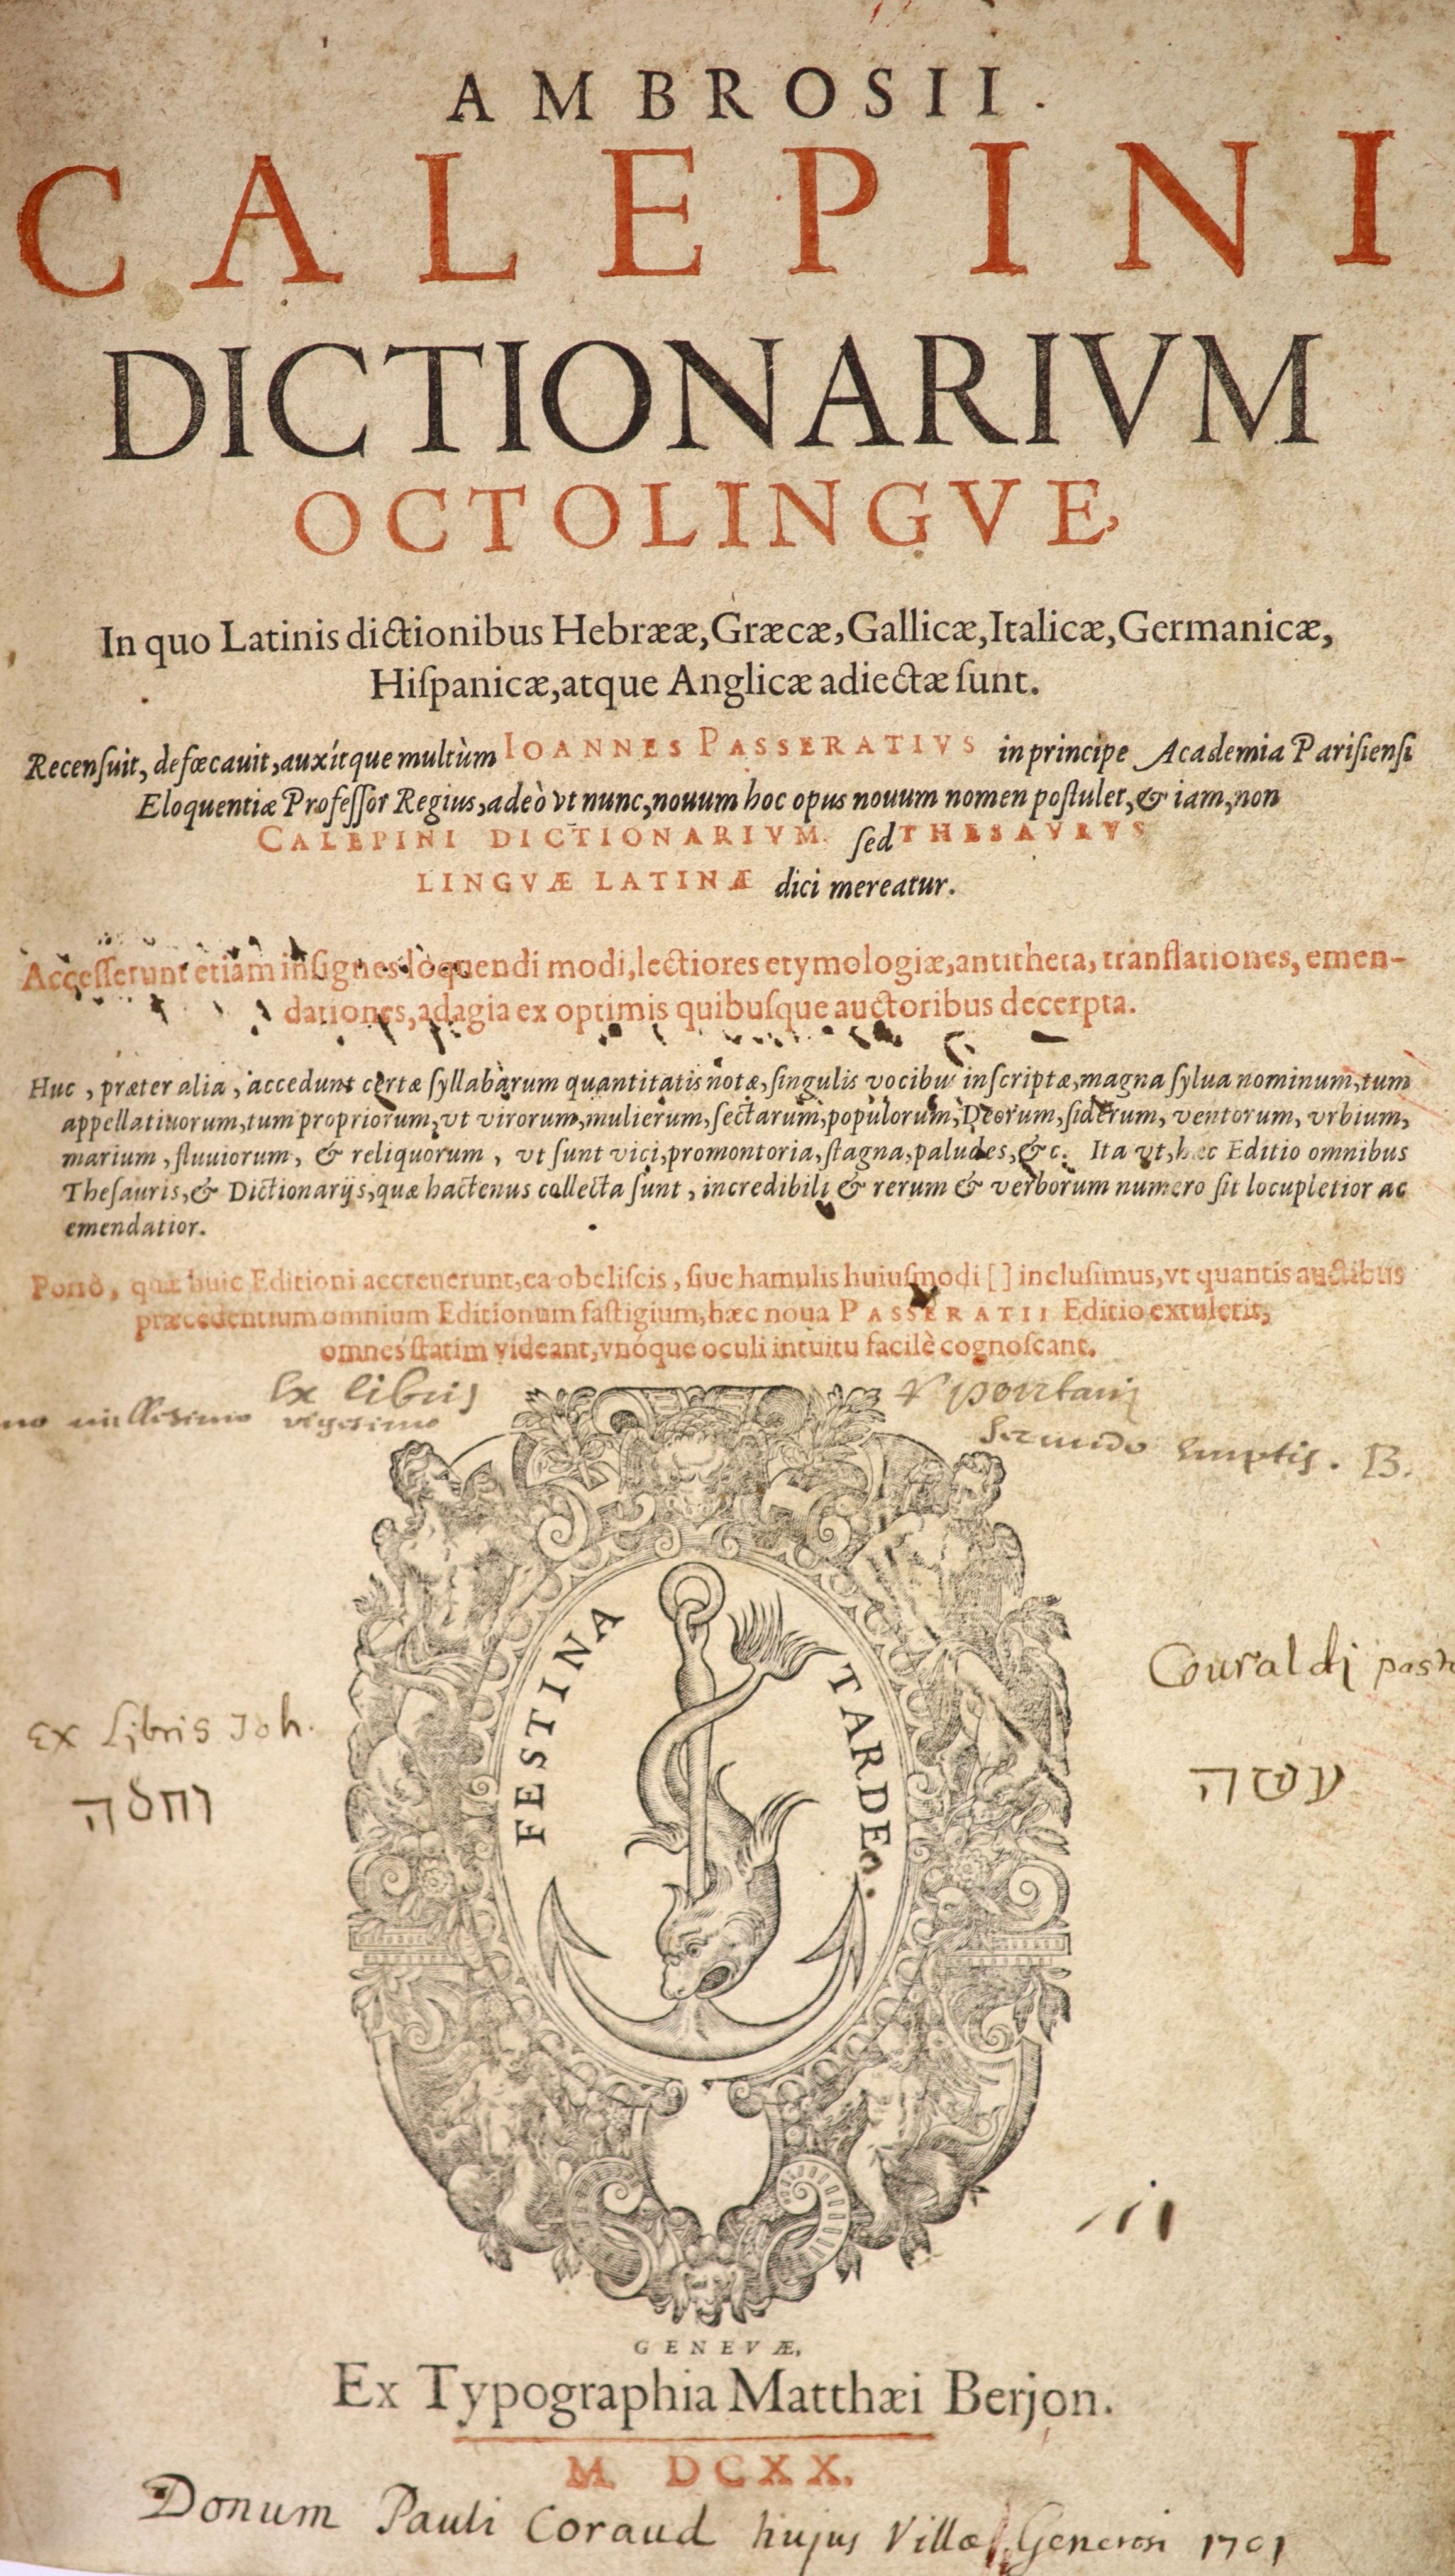 AMBROSII.
CALEPINI
DICTIONARIVM
OCTOLINGVE,
In quo Latinis dictionibus Hebrææ, Græcæ, Gallicæ, Italicæ, Germanicæ,
Hiſpanicæ, atque Anglicæ adiectæ ſunt.
Recenſuit, defœcauit, auxítque multùm IOANNES PASSERATIVS in principe Academia Pariſienſi
Eloquentiæ Profeſſor Regius, adeò vt nunc, nouum hoc opus nouum nomen poſtulet, & iam, non
CALEPINI DICTIONARIVM. ſed THESAVRVS
LINGVÆ LATINÆ dici mereatur.
Acceſſerunt etiam inſignes loquendi modi, lectiores etymologiæ, antitheta, tranſlationes, emen-
dationes, adagia ex optimis quibuſque auctoribus decerpta.
Huc, præter alia, accedunt certæ ſyllabarum quantitatis notæ, ſingulis vocibus inſcriptæ, magna ſylua nominum, tum
appellatiuorum, tum propriorum, vt virorum, mulierum, ſectarum, populorum, Deorum, ſiderum, ventorum, vrbium,
marium, fluuiorum, & reliquorum, vt ſunt vici, promontoria, ſtagna, paludes, &c. Ita vt, hæc Editio omnibus
Theſauris, & Dictionarijs, quæ hactenus collecta ſunt, incredibili & rerum & verborum numero ſit locupletior ac
emendatior.
Porrò, quæ huic Editioni accreuerunt, ea obeliſcis, ſiue hamulis huiuſmodi [ ] incluſimus, vt quantis auctibus
præcedentium omnium Editionum faſtigium, hæc noua PASSERATII Editio extulerit,
omnes ſtatim videant, vnóque oculi intuitu facilè cognoſcant.
Ex libris
millesimo vigesimo secundo emptis. B.
FESTINA TARDE.
Ex Libris Joh. Couraldi
וחלה עשה
GENEVÆ,
Ex Typographia Matthæi Berjon.
M. DCXX.
Donum Pauli Coraud hujus Villæ Generosi 1701